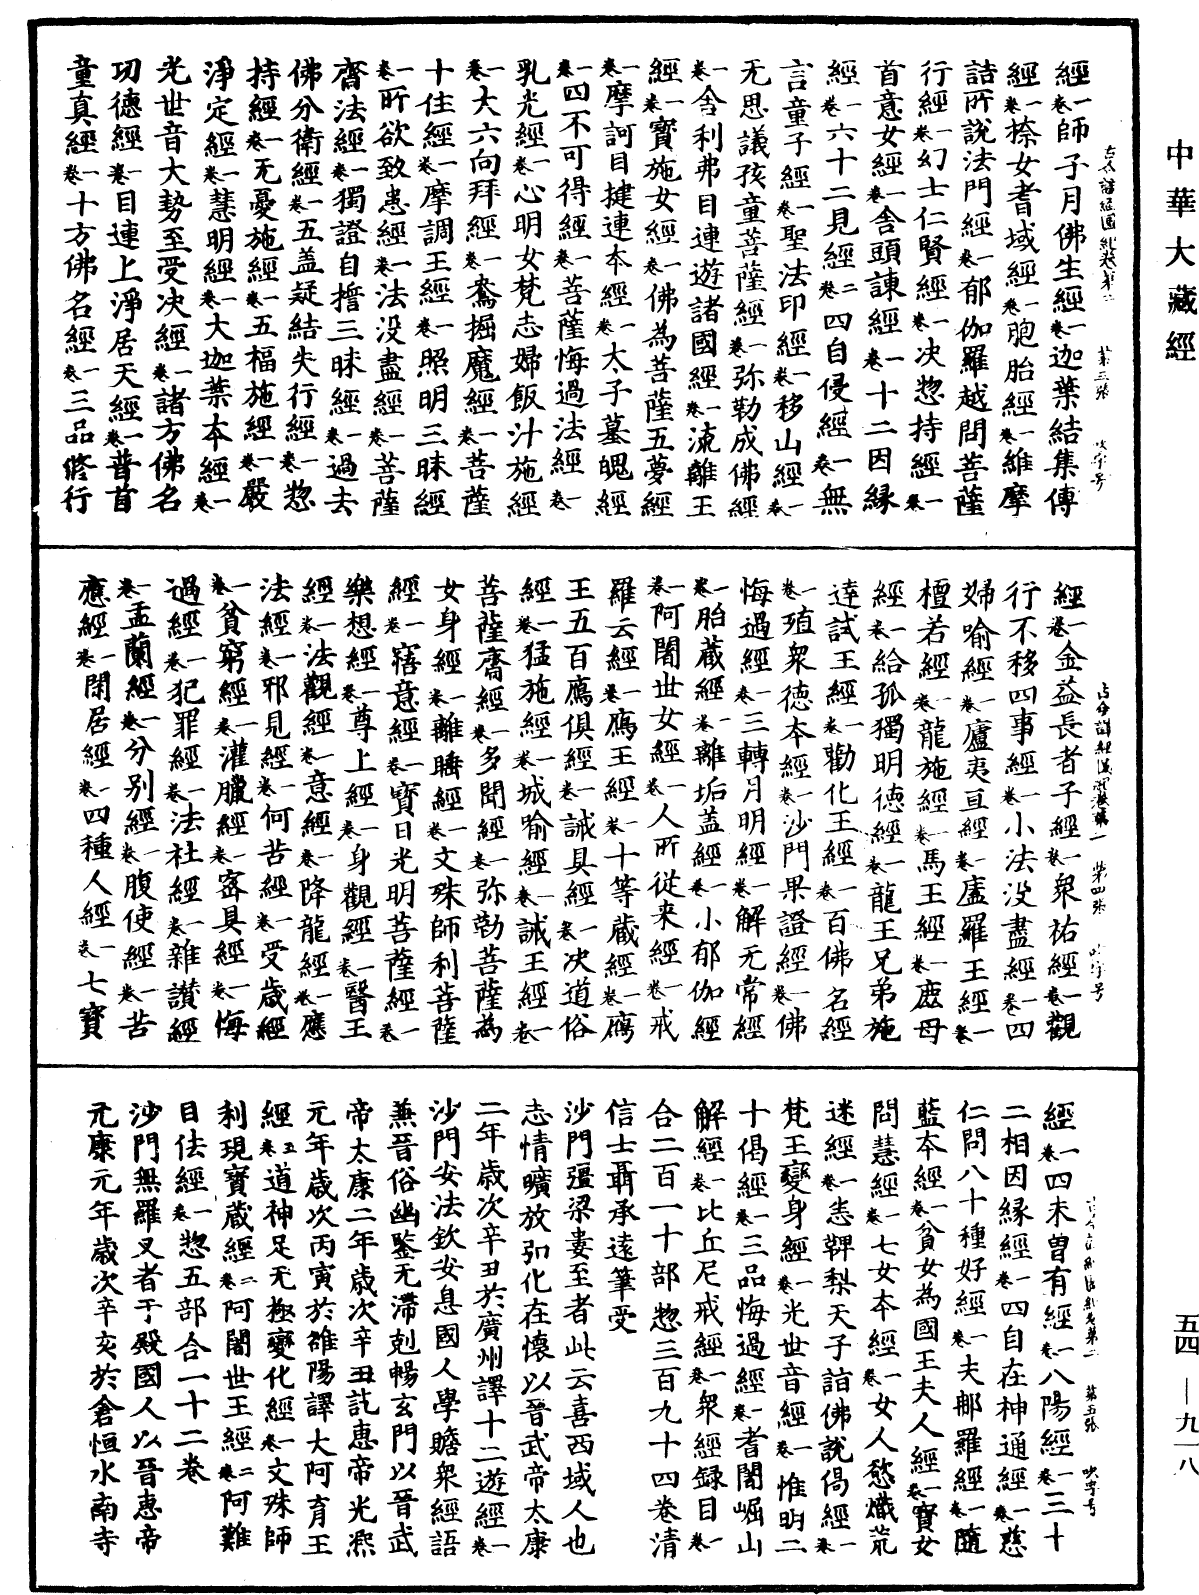 中華大藏經
經一卷師子月佛生經一卷迦葉結集傳
經一卷㮈女耆域經一卷胞胎經一卷維摩
詰所說法門經一卷郁伽羅越問菩薩
行經一卷幻士仁賢經一卷决惣持經一卷
首意女經一卷舍頭諫經一卷十二因縁
經一卷六十二見經二卷四自侵經一卷無
言童子經一卷聖法印經一卷移山經一卷
无思議孩童菩薩經一卷弥勒成佛經
一卷舍利弗目連遊諸國經一卷流離王
經一卷寶施女經一卷佛為菩薩五夢經
一卷摩訶目揵連本經一卷太子墓魄經
一卷四不可得經一卷菩薩悔過法經一卷
乳光經一卷心明女梵志婦飯汁施經
一卷大六向拜經一卷鴦掘魔經一卷菩薩
十住經一卷摩調王經一卷照明三昧經
一卷所欲致患經一卷法没盡經一卷菩薩
齋法經一卷獨證自誓三昧經一卷過去
佛分衛經一卷五盖疑結失行經一卷惣
持經一卷无憂施經一卷五福施經一卷嚴
淨定經一卷慧明經一卷大迦葉本經一卷
光世音大勢至受决經一卷諸方佛名
功德經一卷目連上淨居天經一卷普首
童真經一卷十方佛名經一卷三品修行
經一卷金益長者子經一卷衆祐經一卷觀
行不移四事經一卷小法没盡經一卷四
婦喻經一卷廬夷亘經一卷盧羅王經一卷
檀若經一卷龍施經一卷馬王經一卷鹿母
經一卷給孤獨明德經一卷龍王兄弟施
達試王經一卷勸化王經一卷百佛名經
一卷殖衆德本經一卷沙門果證經一卷佛
悔過經一卷三轉月明經一卷解无常經
一卷胎藏經一卷離垢盖經一卷小郁伽經
一卷阿闍世女經一卷人所從来經一卷戒
羅云經一卷鴈王經一卷十等藏經一卷鴈
王五百鴈俱經一卷誡具經一卷决道俗
經一卷猛施經一卷城喻經一卷誡王經一卷
菩薩齋經一卷多聞經一卷弥勒菩薩為
女身經一卷離睡經一卷文殊師利菩薩
經一卷寤意經一卷寶日光明菩薩經一卷
樂想經一卷尊上經一卷身觀經一卷醫王
經一卷法觀經一卷意經一卷降龍經一卷應
法經一卷邪見經一卷何苦經一卷受歲經
一卷貧窮經一卷灌臘經一卷宻具經一卷悔
過經一卷犯罪經一卷法社經一卷雜讃經
一卷盂蘭經一卷分别經一卷腹使經一卷苦
應經一卷閑居經一卷四種人經一卷七寳
經一卷四未曾有經一卷八陽經一卷三十
二相因縁經一卷四自在神通經一卷慈
仁問八十種好經一卷夫郍羅經一卷隨
藍本經一卷貧女為國王夫人經一卷寳女
問慧經一卷七女本經一卷女人慾熾荒
迷經一卷恚鞞梨天子詣佛說偈經一卷
梵王變身經一卷光世音經一卷惟明二
十偈經一卷三品悔過經一卷耆闍崛山
解經一卷比丘尼戒經一卷衆經録目一卷
合二百一十部惣三百九十四卷清
信士聶承遠筆受
沙門彊梁婁至者此云喜西域人也
志情曠放弘化在懷以晉武帝太康
二年歲次辛丑於廣州譯十二遊經一卷
沙門安法欽安息國人學贍衆經語
兼晉俗幽鑒无滯剋暢玄門以晉武
帝太康二年歲次辛丑訖惠帝光熙
元年歲次丙寅於雒陽譯大阿育王
經五卷道神足无極變化經一卷文殊師
利現寳藏經二卷阿闍世王經二卷阿難
目佉經一卷惣五部合一十二卷
沙門無羅叉者于殿國人以晉惠帝
元康元年歲次辛亥於倉恒水南寺
五四—九一八